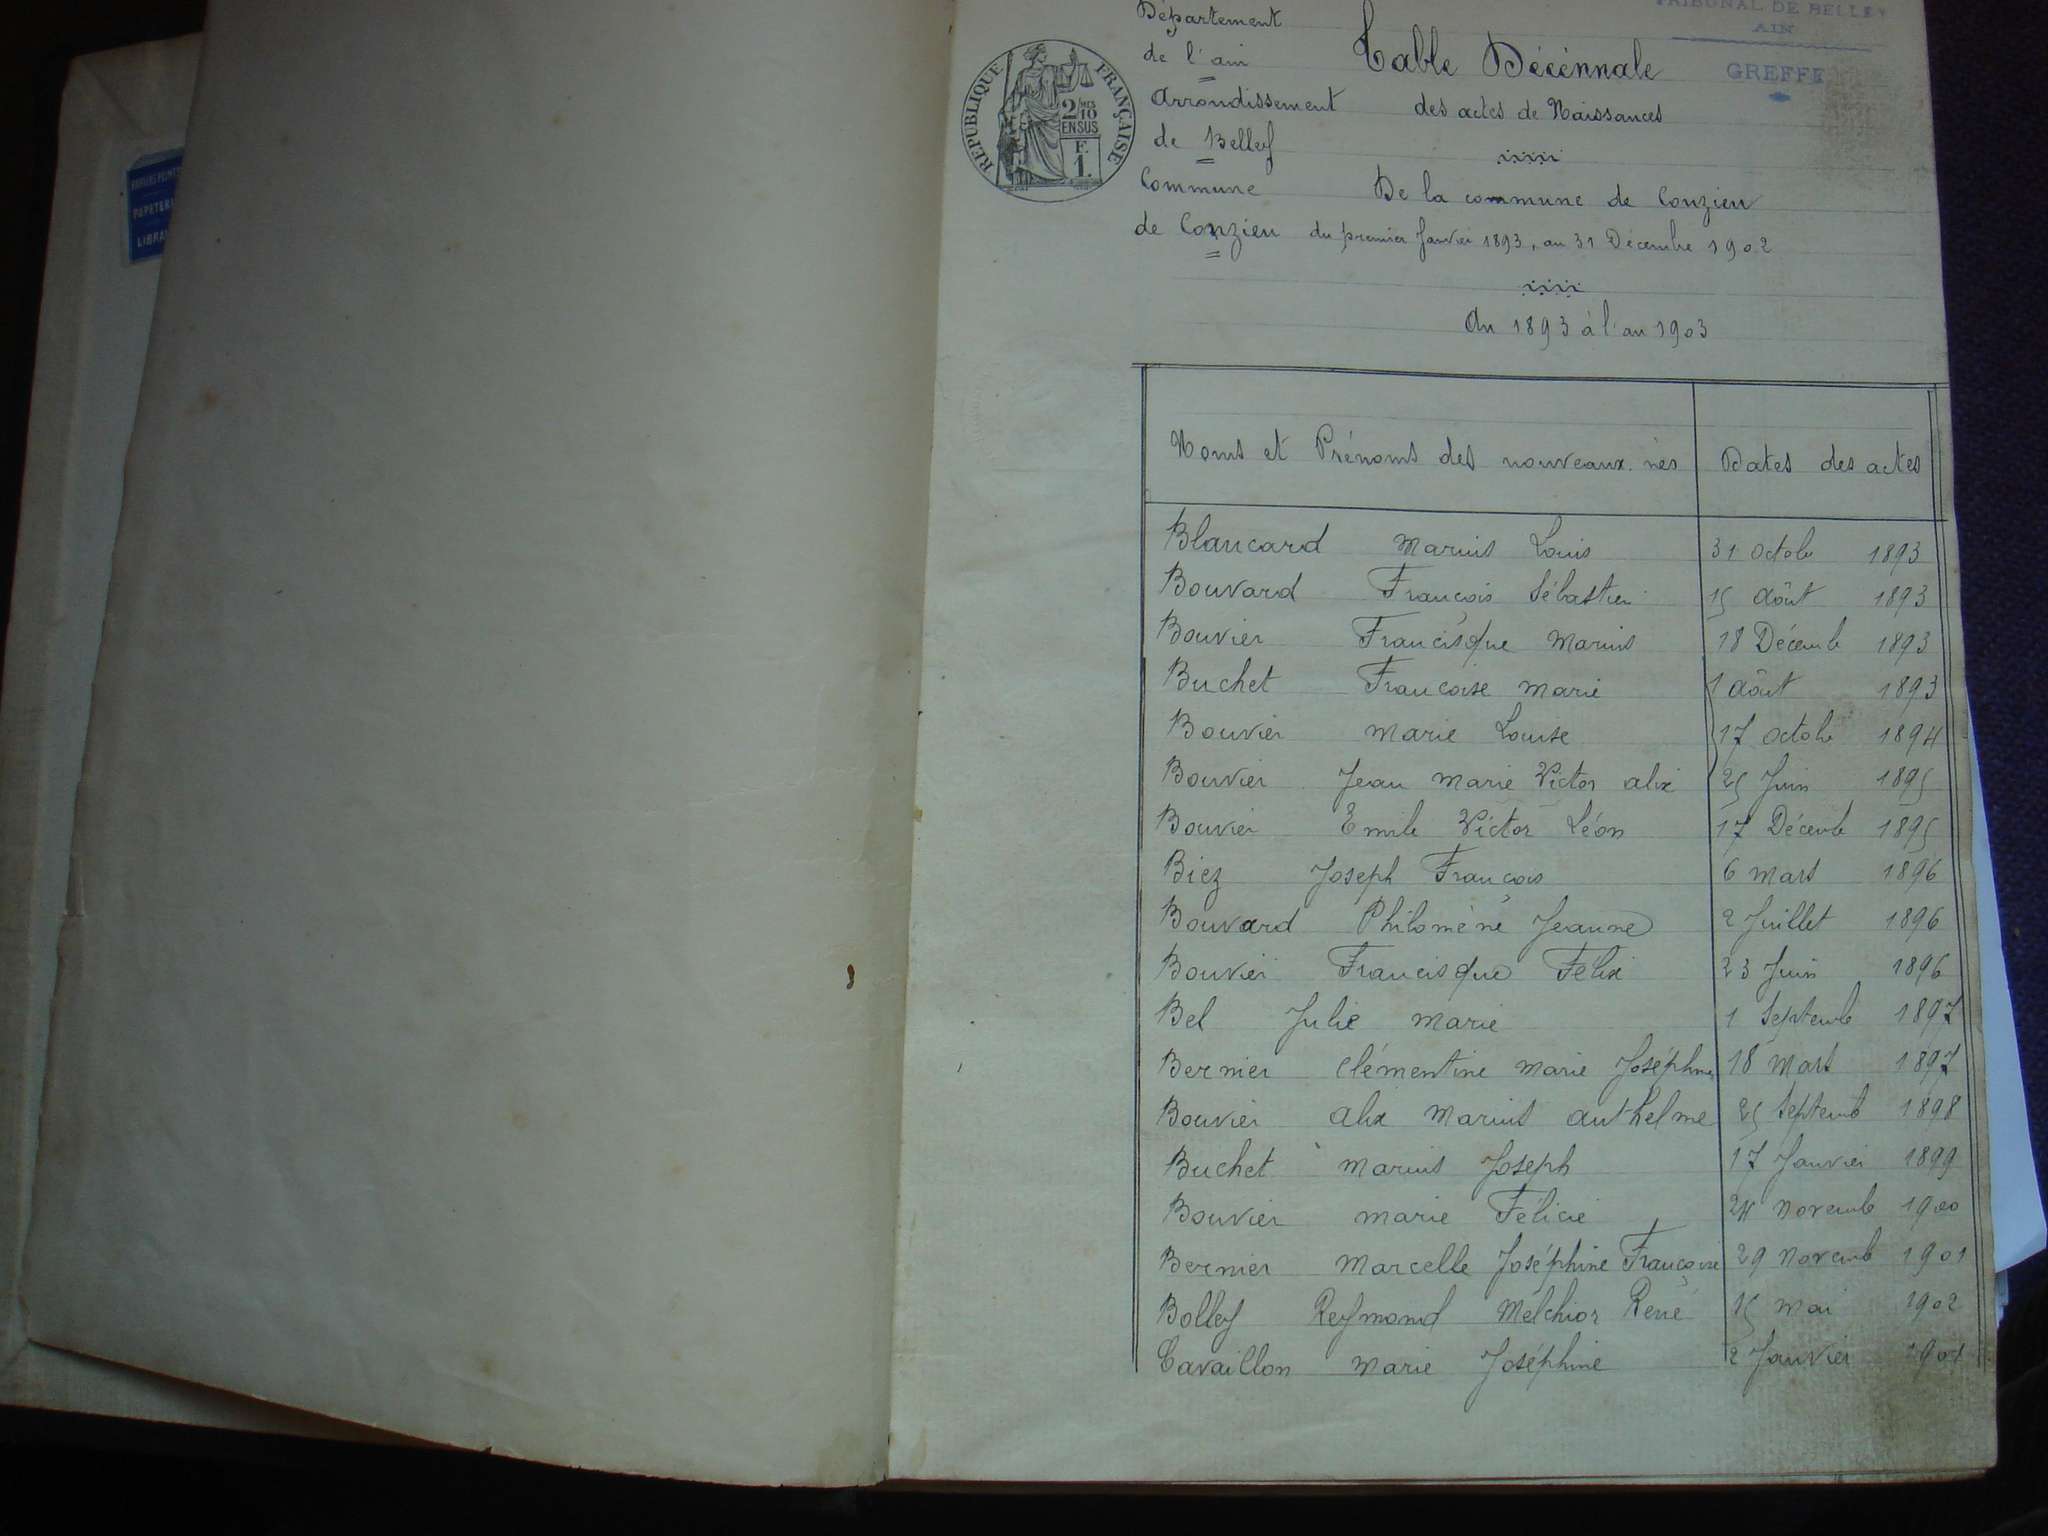 PAPIERS PEINTS
PAPETERI
LIBRAI
RÉPUBLIQUE FRANÇAISE
2/10 MES
EN SUS
F.
1.
TRIBUNAL DE BELLEY
AIN
GREFFE
Département
de l'ain
Arrondissement
de Belley
Commune
de Conzieu
Table Décénnale
des actes de Naissances
De la commune de Conzieu
du premier Janvier 1893, au 31 Décembre 1902
An 1893 à l'an 1903
Noms et Prénoms des nouveaux. nés Dates des actes
Blancard Marius Louis 31 Octobe 1893
Bouvard François Sébastien 15 Août 1893
Bouvier Francisque Marius 18 Décemb 1893
Buchet Françoise Marie 1 Août 1893
Bouvier Marie Louise 17 Octobe 1894
Bouvier Jean Marie Victor Alix 25 Juin 1895
Bouvier Emile Victor Léon 17 Décemb 1895
Biez Joseph François 6 Mars 1896
Bouvard Philoméne Jeanne 2 Juillet 1896
Bouvier Francisque Felix 23 Juin 1896
Bel Julie Marie 1 Septemb 1897
Bernier Clémentine Marie Joséphine 18 Mars 1897
Bouvier Alix Marius Anthelme 25 Septemb 1898
Buchet Marius Joseph 17 Janvier 1899
Bouvier Marie Félicie 24 Novemb 1900
Bernier Marcelle Joséphine Françoise 29 Novemb 1901
Bolley Reymond Melchior René 15 Mai 1902
Cavaillon Marie Joséphine 2 Janvier